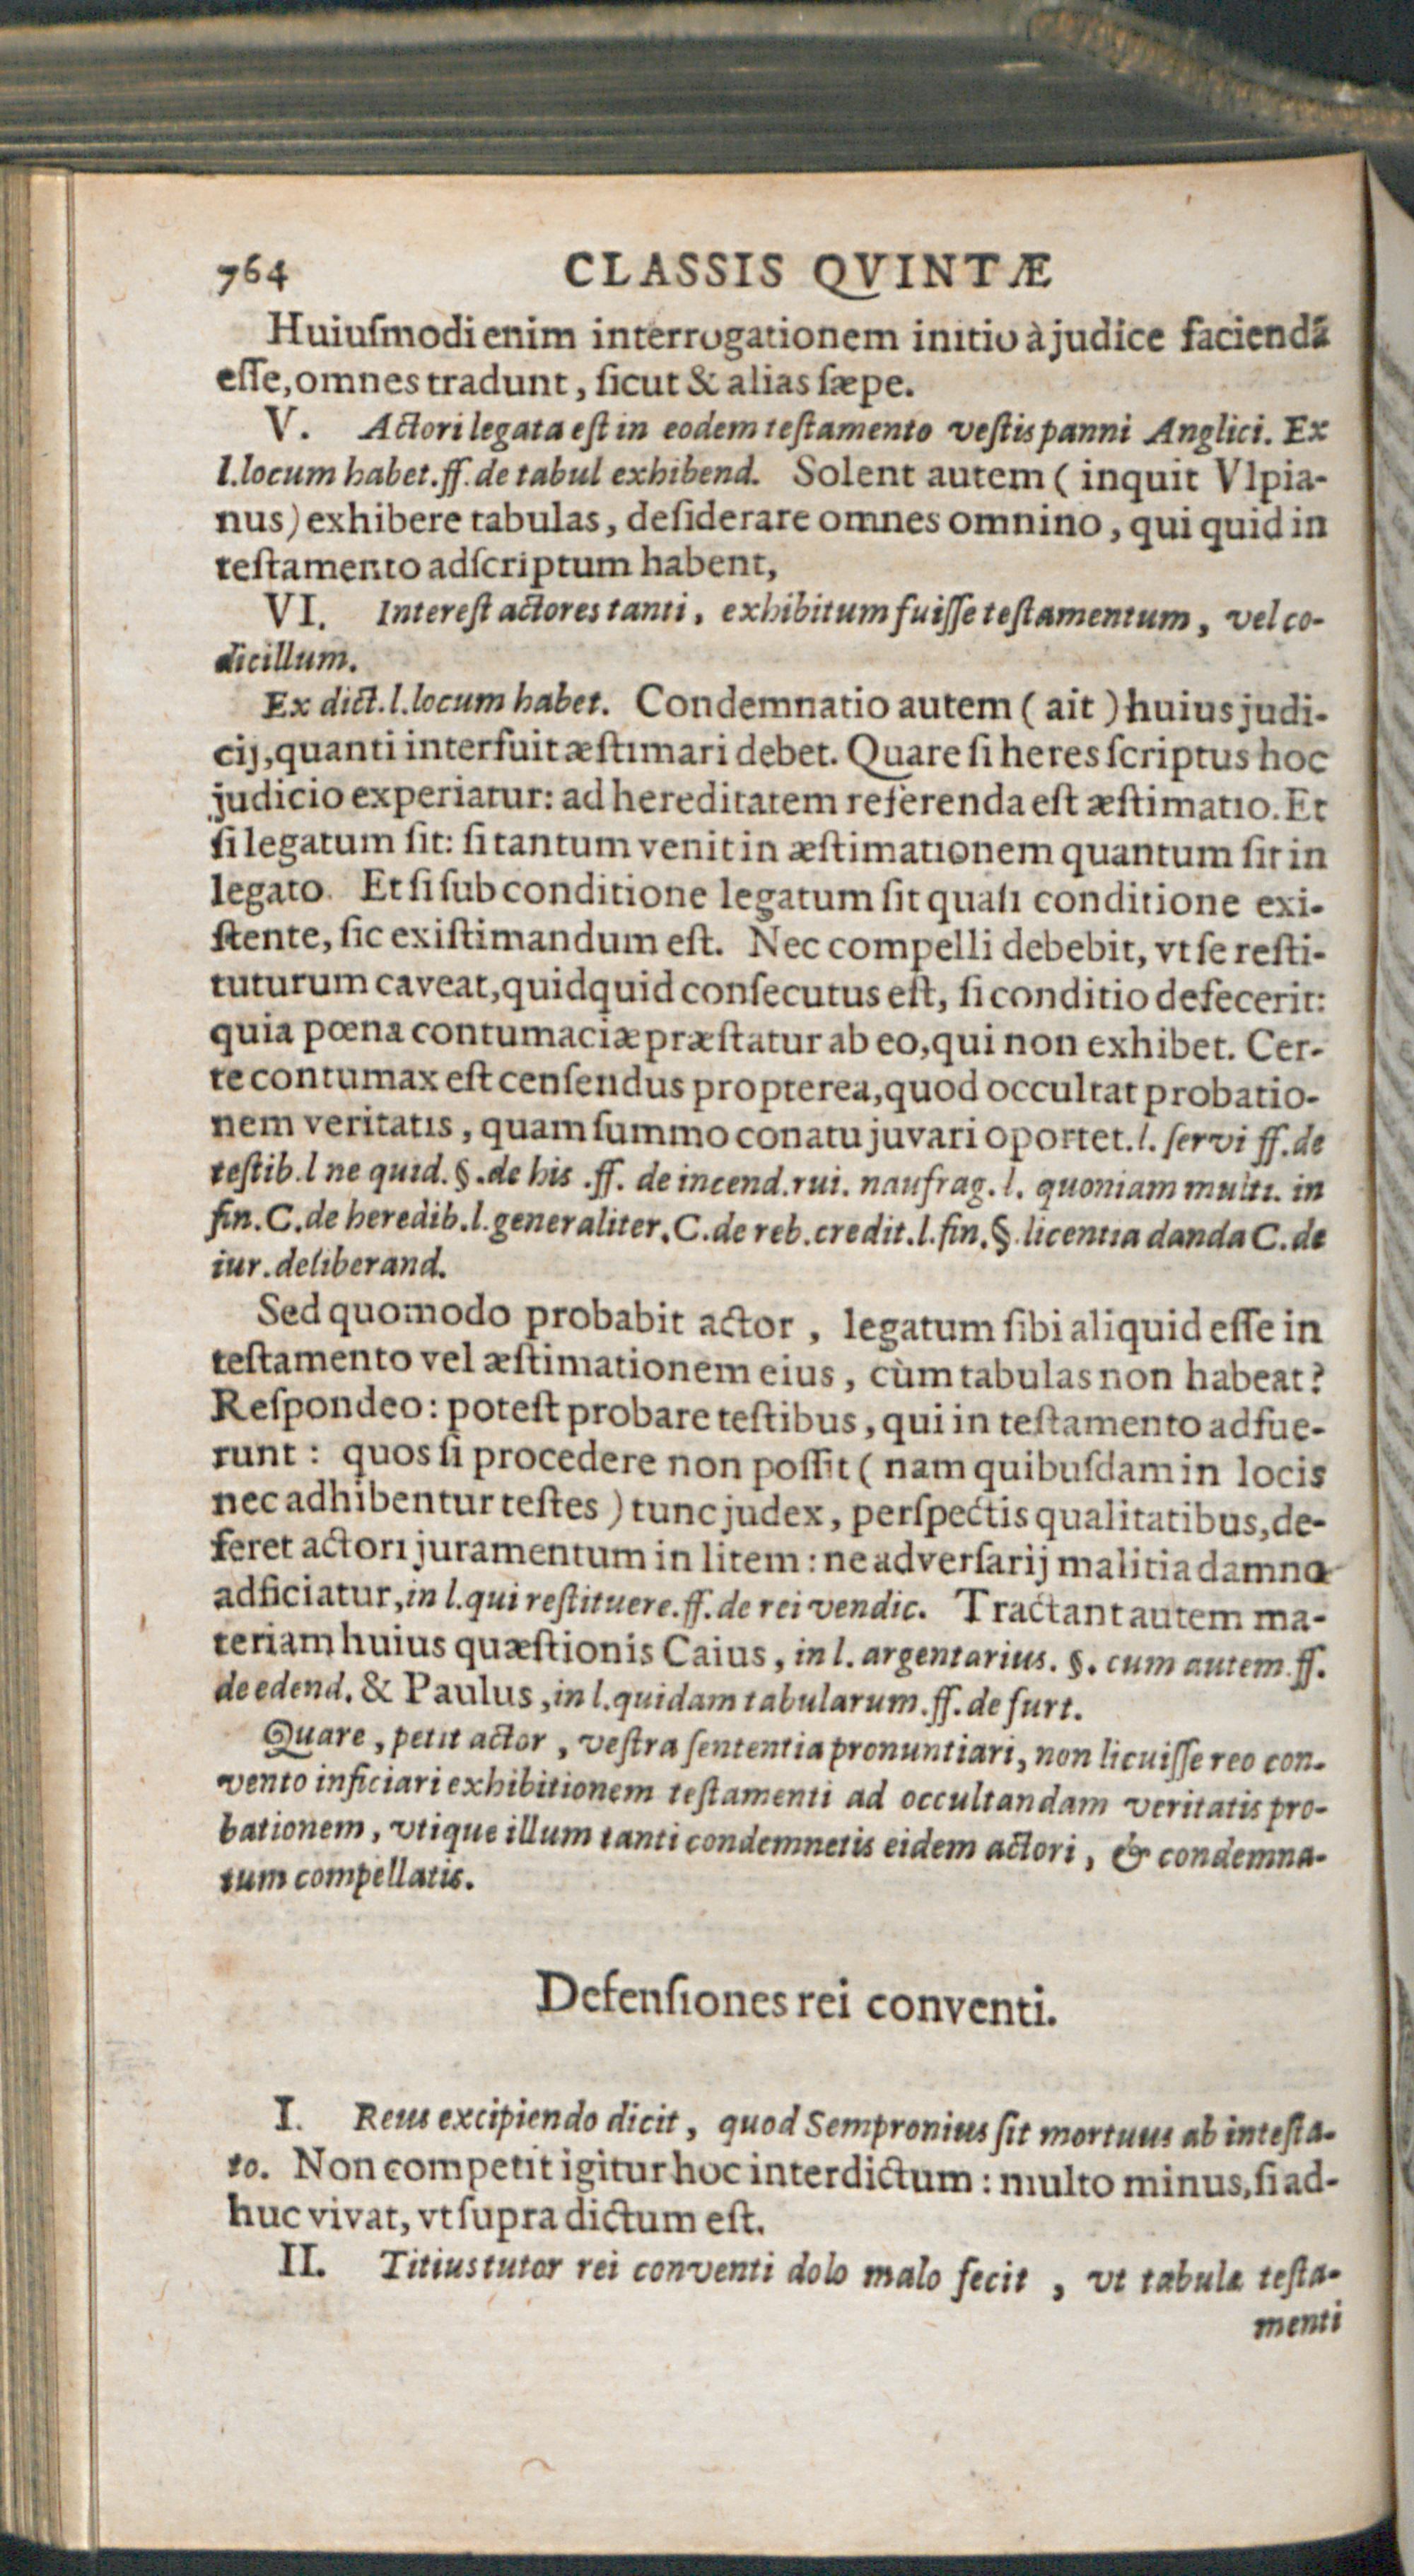 764 CLASSIS QVINTÆ
Huiuſmodi enim interrogationem initio à judice faciendã
eſſe, omnes tradunt, ſicut & alias ſæpe.
V. Actori legata eſt in eodem teſtamento veſtis panni Anglici. Ex
l. locum habet. ff. de tabul exhibend. Solent autem ( inquit Vlpia-
nus) exhibere tabulas, deſiderare omnes omnino, qui quid in
teſtamento adſcriptum habent,
VI. Intereſt actores tanti, exhibitum fuiſſe teſtamentum, vel co-
dicillum.
Ex dict. l. locum habet. Condemnatio autem ( ait ) huius judi-
cij, quanti interfuit æſtimari debet. Quare ſi heres ſcriptus hoc
judicio experiatur: ad hereditatem referenda eſt æſtimatio. Et
ſi legatum ſit: ſi tantum venit in æſtimationem quantum ſit in
legato. Et ſi ſub conditione legatum ſit quaſi conditione exi-
ſtente, ſic exiſtimandum eſt. Nec compelli debebit, vt ſe reſti-
tuturum caveat, quidquid conſecutus eſt, ſi conditio defecerit:
quia pœna contumaciæ præſtatur ab eo, qui non exhibet. Cer-
te contumax eſt cenſendus propterea, quod occultat probatio-
nem veritatis, quam ſummo conatu juvari oportet. l. ſervi ff. de
teſtib. l ne quid. §. de his .ff. de incend. rui. naufrag. l. quoniam multi. in
fin. C. de heredib. l. generaliter. C. de reb. credit. l. fin. §. licentia danda C. de
iur. deliberand.
Sed quomodo probabit actor, legatum ſibi aliquid eſſe in
teſtamento vel æſtimationem eius, cùm tabulas non habeat?
Reſpondeo: poteſt probare teſtibus, qui in teſtamento adfue-
runt: quos ſi procedere non poſſit ( nam quibuſdam in locis
nec adhibentur teſtes ) tunc judex, perſpectis qualitatibus, de-
feret actori juramentum in litem: ne adverſarij malitia damno
adficiatur, in l. qui reſtituere. ff. de rei vendic. Tractant autem ma-
teriam huius quæſtionis Caius, in l. argentarius. §. cum autem. ff.
de edend. & Paulus, in l. quidam tabularum. ff. de furt.
Quare, petit actor, veſtra ſententia pronuntiari, non licuiſſe reo con-
vento inficiari exhibitionem teſtamenti ad occultandam veritatis pro-
bationem, vtique illum tanti condemnetis eidem actori, & condemna-
tum compellatis.
Defenſiones rei conventi.
I. Reus excipiendo dicit, quod Sempronius ſit mortuus ab inteſta-
to. Non competit igitur hoc interdictum: multo minus, ſi ad-
huc vivat, vt ſupra dictum eſt.
II. Titius tutor rei conventi dolo malo fecit, vt tabulæ teſta-
menti